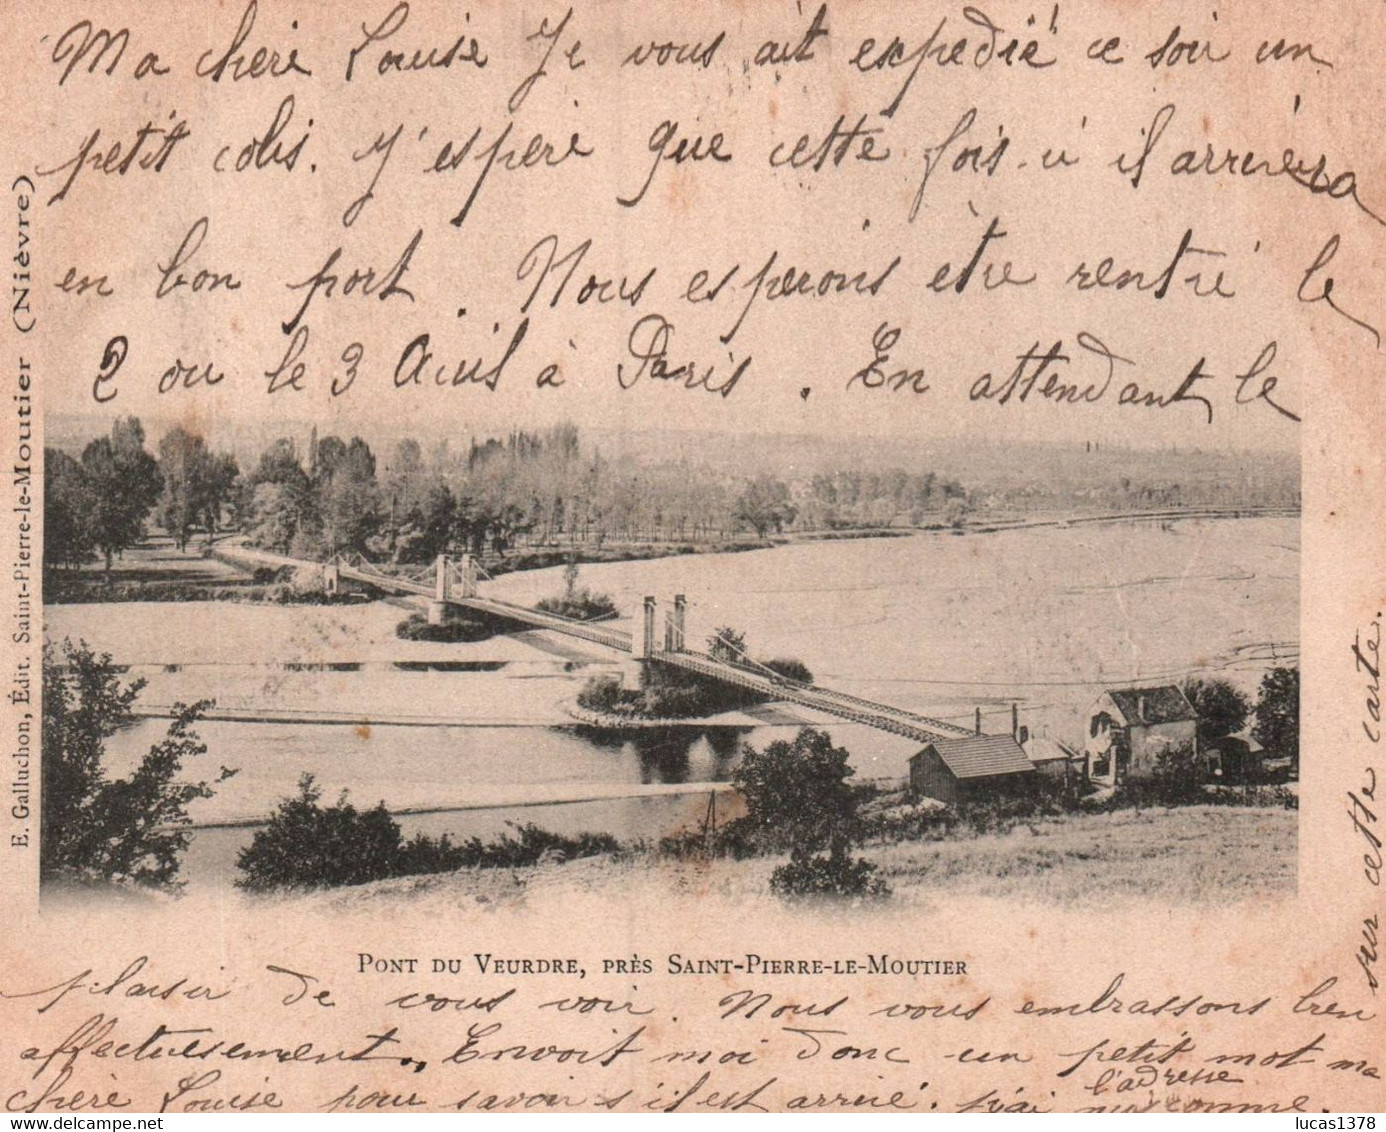 Ma chère Louise Je vous ait expedié ce soir un
petit colis. J'espère que cette fois-ci il arrivera
en bon port. Nous esperons être rentré le
2 ou le 3 Avril à Paris. En attendant le
E. Galluchon, Édit. Saint-Pierre-le-Moutier (Nièvre)
PONT DU VEURDRE, PRÈS SAINT-PIERRE-LE-MOUTIER
plaisir de vous voir. Nous vous embrassons bien
affectueusement. Envoit moi donc un petit mot ma
chère Louise pour savoir s'il est arrivé. j'ai mis comme
l'adresse
sur cette carte.
lucas1378